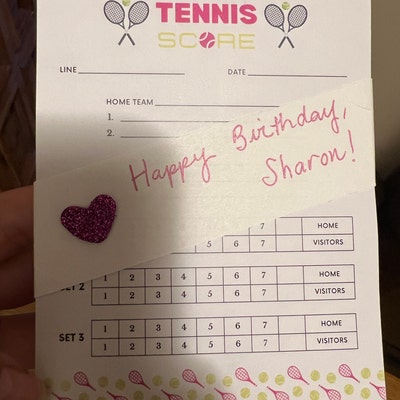 TENNIS
SCORE
LINE DATE
HOME TEAM
1.
2.
Happy Birthday,
Sharon!
7 HOME
5 6 7 VISITORS
SET 2 1 2 3 4 5 6 7 HOME
1 2 3 4 5 6 7 VISITORS
SET 3 1 2 3 4 5 6 7 HOME
1 2 3 4 5 6 7 VISITORS